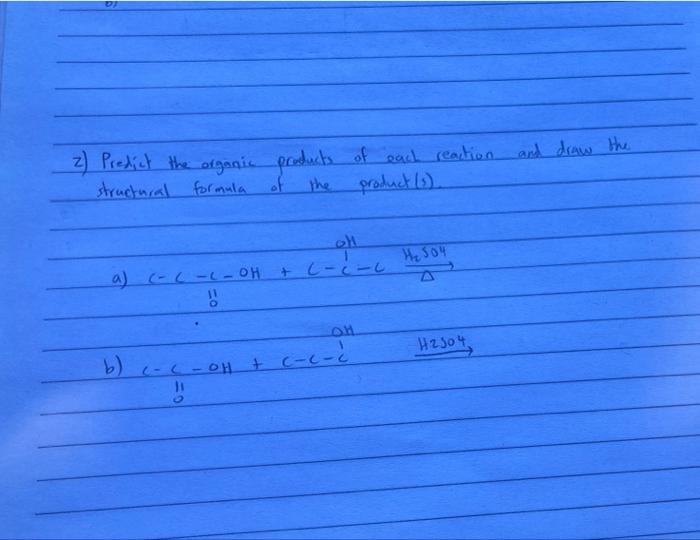 b)
2) Predict the organic products of each reaction and draw the
structural formula of the product(s).
OH
a) C-C-C-OH + C-C-C H2SO4
|| Δ
O
OH
b) C-C-OH + C-C-C H2SO4
||
O